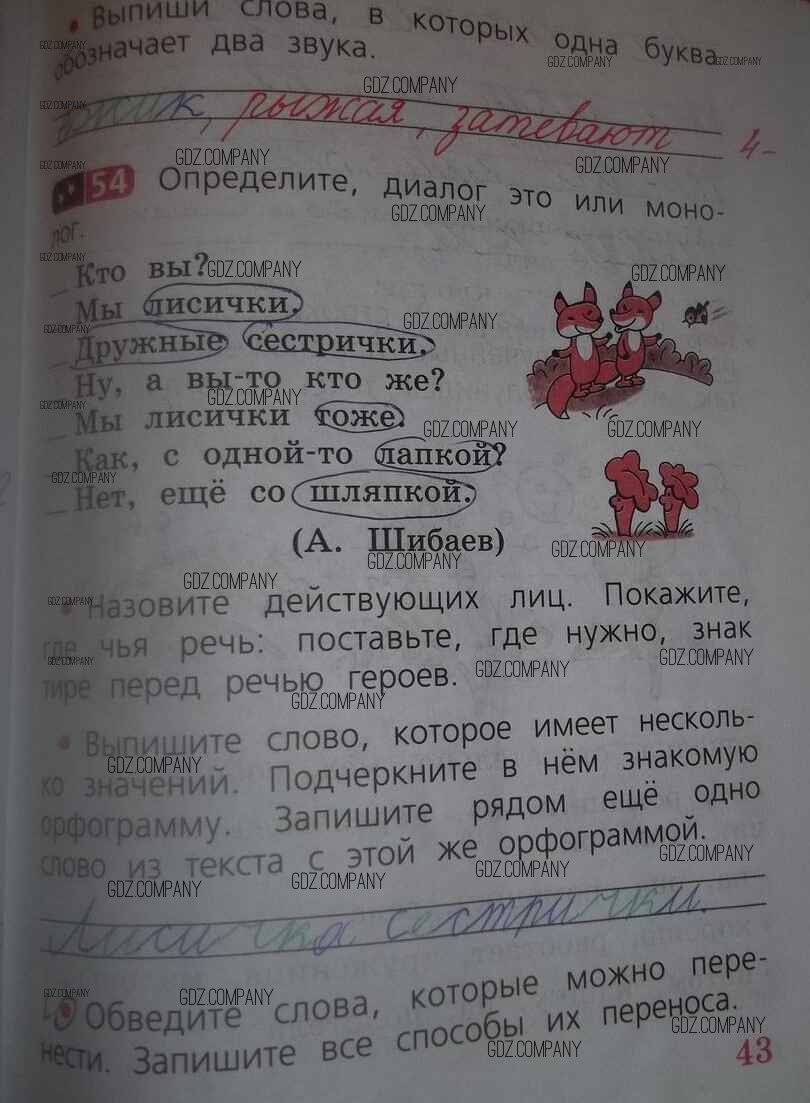 • Выпиши слова, в которых одна буква
обозначает два звука.
рыжая, затевают 4-
54 Определите, диалог это или моно-
лог.
Кто вы?
Мы лисички.
Дружные сестрички.
Ну, а вы-то кто же?
Мы лисички тоже.
Как, с одной-то лапкой?
Нет, ещё со шляпкой.
(А. Шибаев)
• Назовите действующих лиц. Покажите,
где чья речь: поставьте, где нужно, знак
тире перед речью героев.
• Выпишите слово, которое имеет несколь-
ко значений. Подчеркните в нём знакомую
орфограмму. Запишите рядом ещё одно
слово из текста с этой же орфограммой.
Лисичка сестрички.
• Обведите слова, которые можно пере-
нести. Запишите все способы их переноса.
43
GDZ.COMPANY